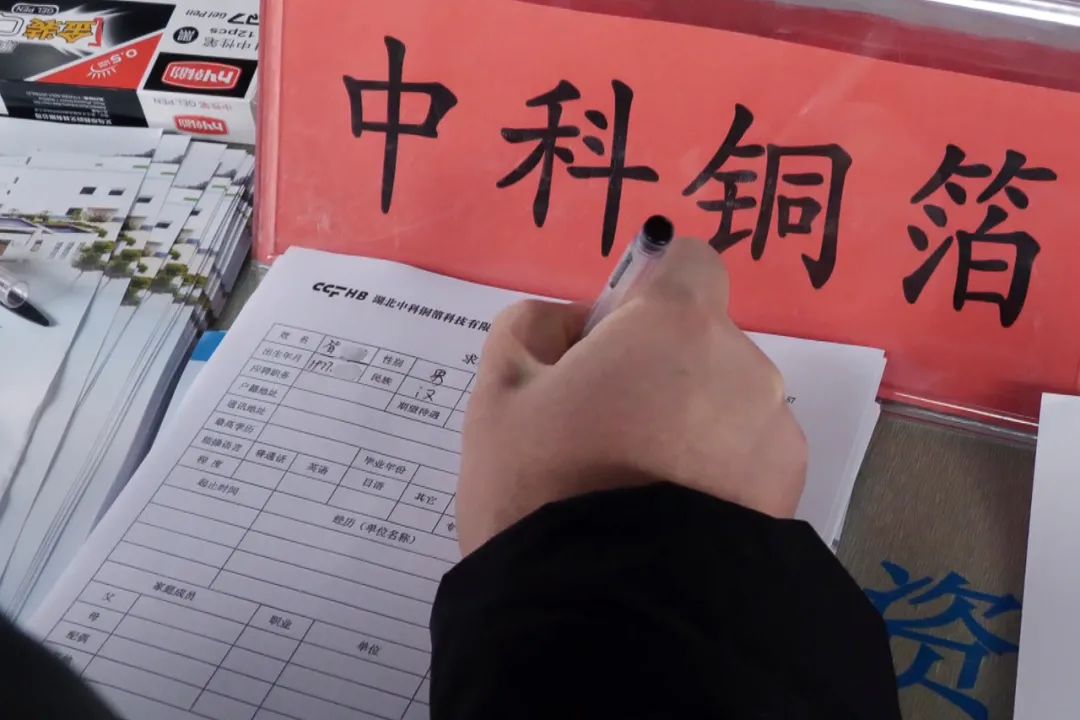 GEL PEN
金装
0.5
Gel Pen
12pcs
中性笔
中性笔 GEL PEN
中科铜箔
CCFHB 湖北中科铜箔科技有限
求
姓 名 性别 男
出生年月 1977. 民族 汉
应聘职务 期望待遇
户籍地址
通讯地址
最高学历 毕业年份
掌握语言 普通话 英语 日语 其它
程 度 专
起止时间 经历（单位名称）
家庭成员 职业 单位
父
母
配偶
资